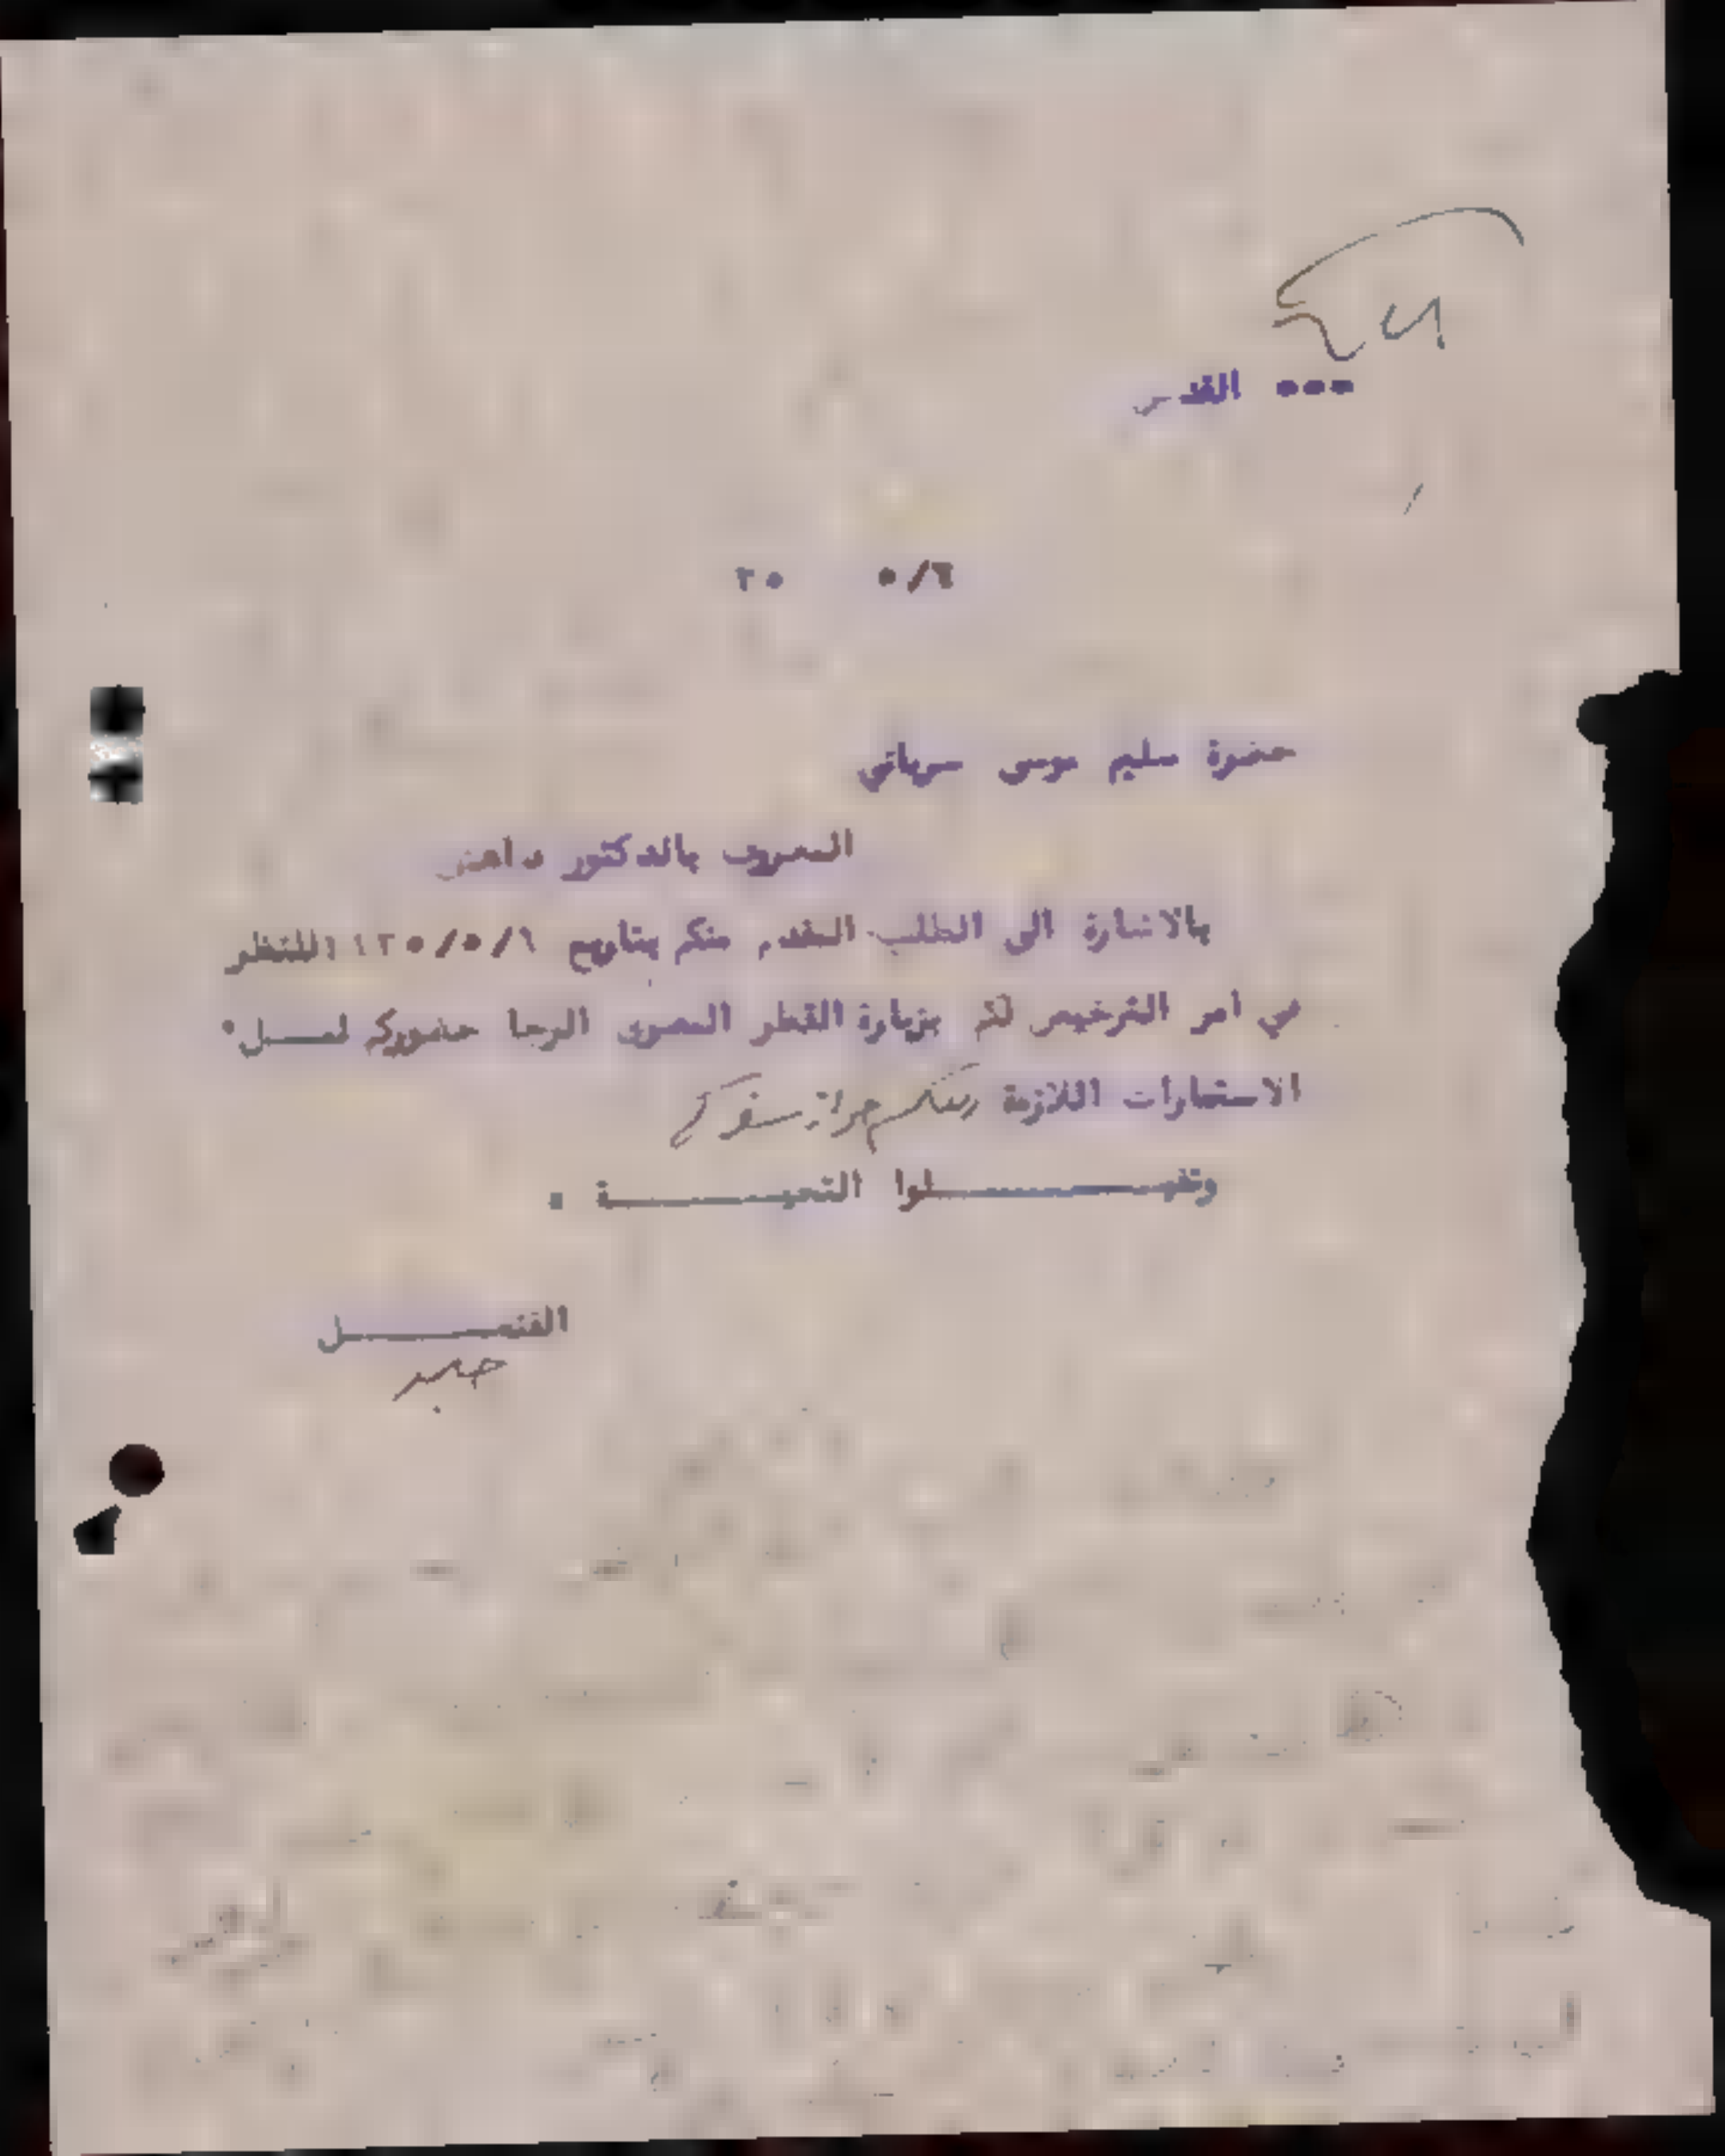 ٥٥٥ القدس
٥/٦ ٣٥
حضرة سليم موسى سرياني
المعروف بالدكتور داهش
بالاشارة الى الطلب المقدم منكم بتاريخ ١٩٣٥/٥/٦ للنظر
في امر الترخيص لكم بزيارة القطر المصرى الرجا حضوركم لعمـــل
الاستمارات اللازمة ومعكم جواز سفركم
وتفضـــــــلوا التحيـــــــة .
القنصـــــــل